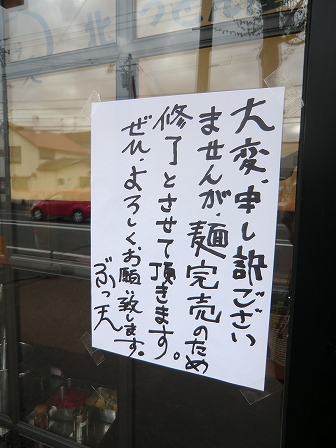 大変.申し訳ござい
ませんが.麺完売のため
修了とさせて頂きます。
ぜひ.よろしくお願い致します。
ぶっ天